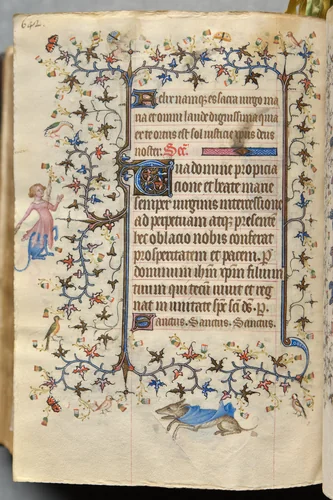 642.
Felix namq; es sacra uirgo ma
ria et omni laude dignissima quia
ex te ortus est sol iusticie xpus deus
noster. Sec̄.
Tua domine propicia
tione et beate marie
semper uirginis intercessione
ad perpetuam atq; presentē
hec oblacio nobis conferat
prosperitatem et pacem. P̄
dominum ihm̄ xpm̄ filium
tuum qui tecū uiuit et reg
nat in unitate sp̄c sc̄i ds̄. P̄.
Sanctus. Sanctus. Sanctus.